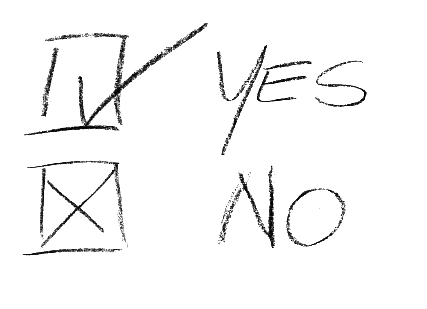 YES
NO